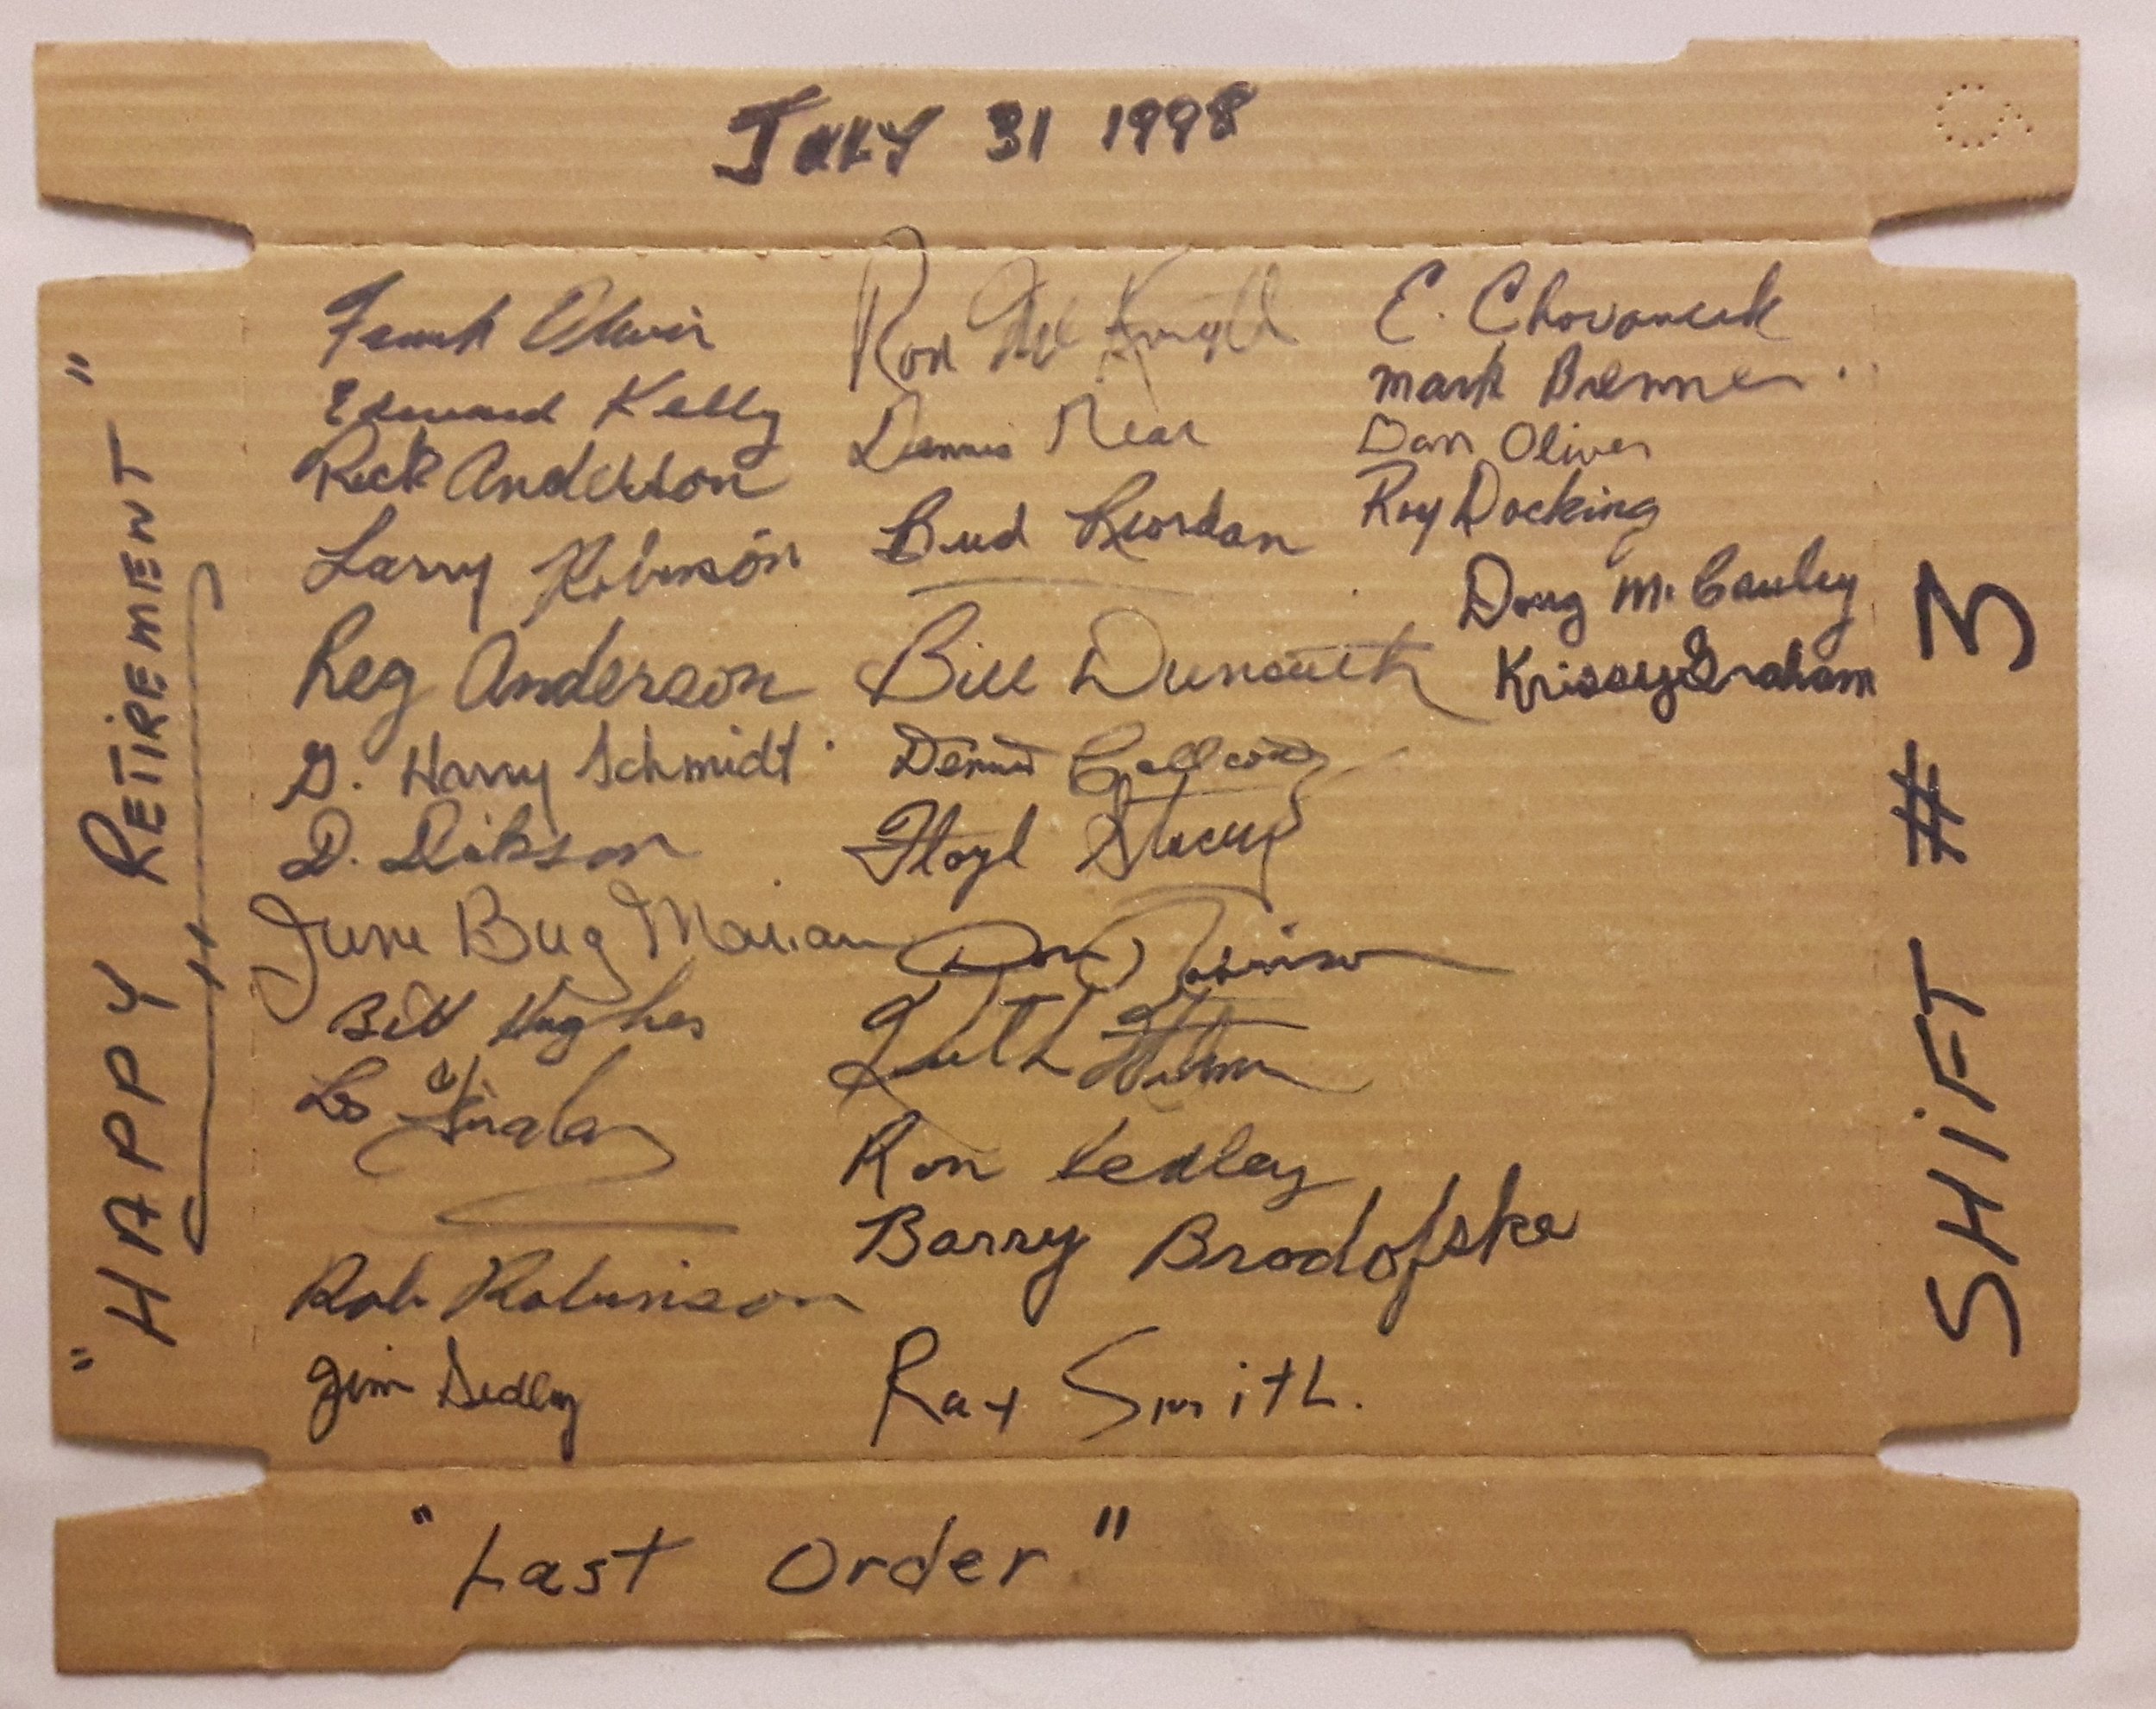 JULY 31 1998
"HAPPY RETIREMENT"
Frank Oliver
Edward Kelly
Rick Anderson
Larry Robinson
Reg Anderson
G. Harry Schmidt
D. Dikson
June Bug Marian
Bill Hughes
Les
Rob Robinson
Jim Sedley
Ron McKnight
Dennis Near
Bud Riordan
Bill
Dennis Galloway
Floyd Stacey
Don Robinson
Keith
Ron Kedley
Barry Brodofske
Ray Smith.
E.
Mark Brenner.
Dan Oliver
Roy Docking
Doug McCauley
Krissy Graham
SHiFT # 3
"Last Order"